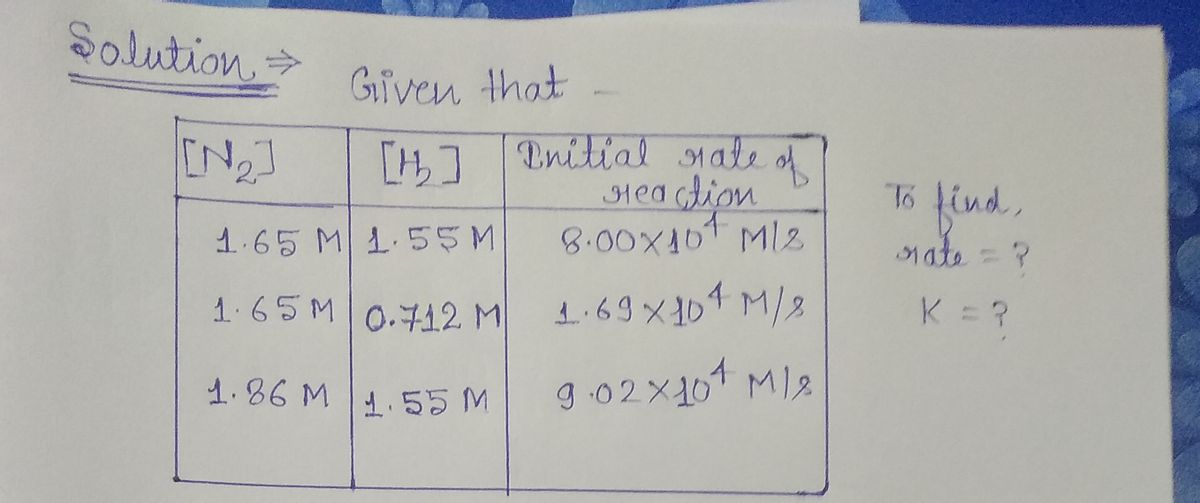 Solution ⇒
Given that -
[N₂] [H₂] Initial rate of
reaction
1.65 M 1.55 M 8.00×10⁴ M/s
1.65 M 0.712 M 1.69×10⁴ M/s
1.86 M 1.55 M 9.02×10⁴ M/s
To find,
rate = ?
K = ?